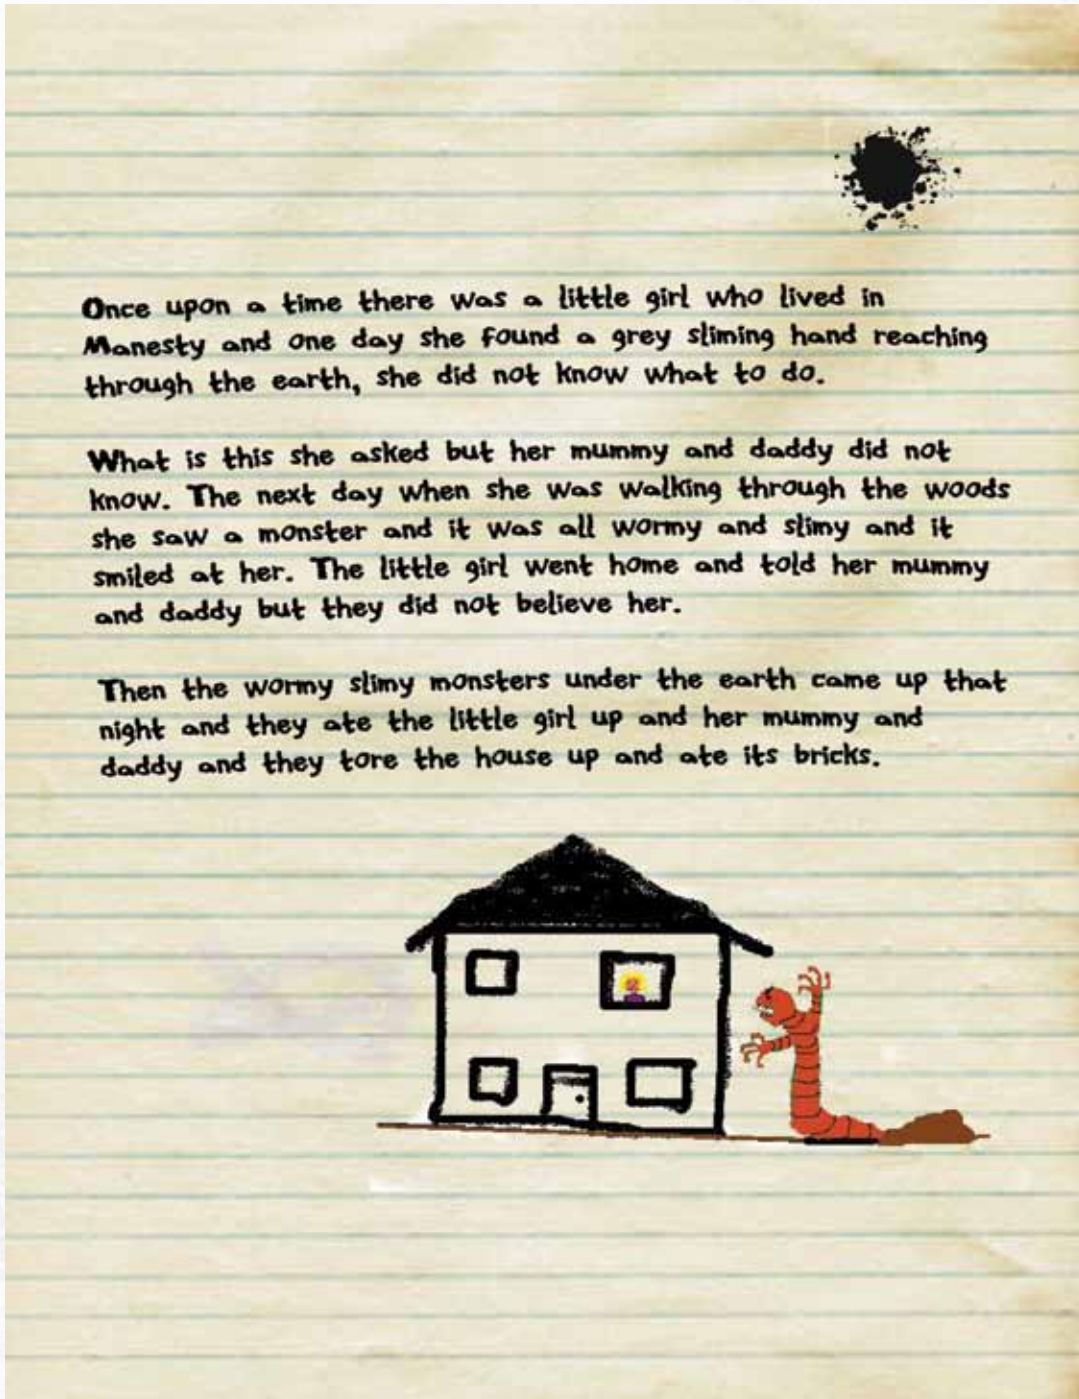 Once upon a time there was a little girl who lived in
Manesty and one day she found a grey sliming hand reaching
through the earth, she did not know what to do.
What is this she asked but her mummy and daddy did not
know. The next day when she was walking through the woods
she saw a monster and it was all wormy and slimy and it
smiled at her. The little girl went home and told her mummy
and daddy but they did not believe her.
Then the wormy slimy monsters under the earth came up that
night and they ate the little girl up and her mummy and
daddy and they tore the house up and ate its bricks.